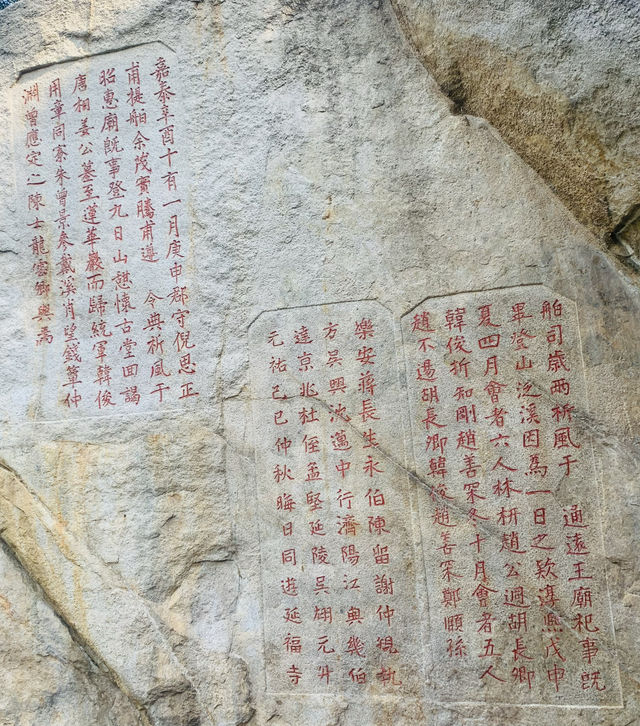 舶司歲兩祈風于　通遠王廟祀事既
畢登山泛溪因為一日之欵淳熈戊申
夏四月會者六人林枅趙公迥胡長卿
韓俊折知剛趙善寀冬十月會者五人
趙不逷胡長卿韓俊趙善寀鄭頤孫
樂安蔣長生永伯陳留謝仲規執
方吳興沈邁中行濟陽江與幾伯
達京兆杜侄孟堅延陵吳翃元升
元祐己巳仲秋晦日同遊延福寺
嘉泰辛酉十有一月庚申郡守倪思正
甫提舶余茂實騰甫遵　令典祈風于
昭惠廟既事登九日山憇懷古堂回謁
唐相姜公墓至蓮華巖而歸統軍韓俊
用章同寮朱曾景參戴溪肖望錢簞仲
淵曾應定之陳士龍雲卿與焉